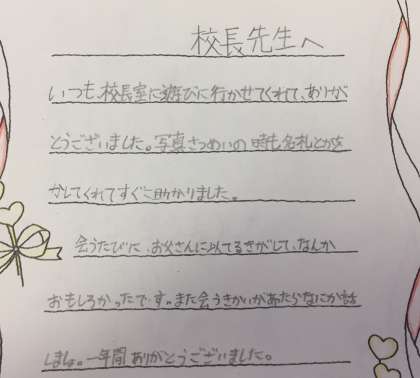 校長先生へ
いつも、校長室に遊びに行かせてくれて、ありが
とうございました。写真さつめいの時も名札とかを
かしてくれてすぐに助かりました。
会うたびに、お父さんに似てるきがして、なんか
おもしろかったです。また会うきかいがあたらなにか話
しましょ。一年間ありがとうございました。